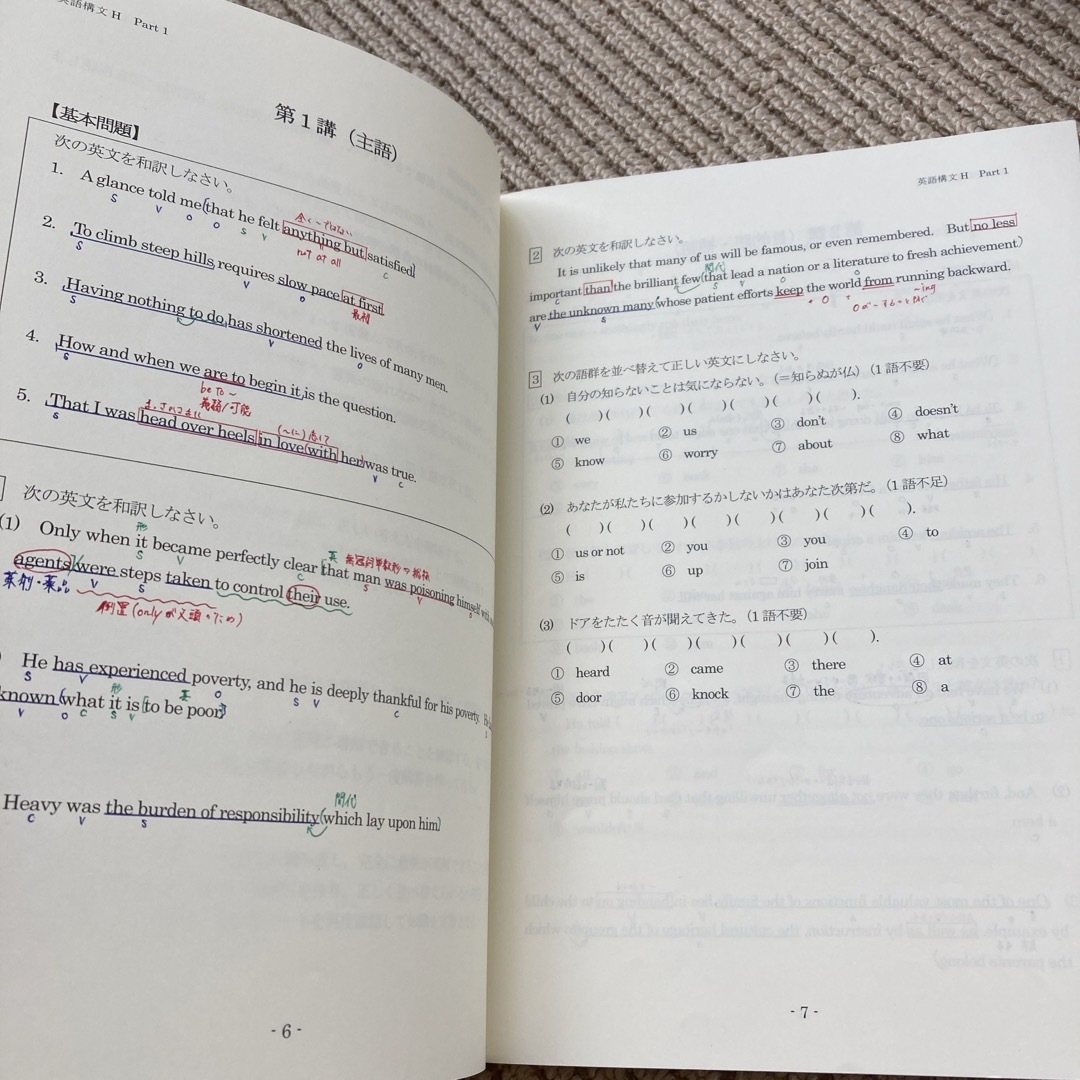 英語構文 H Part 1
第1講（主語）
【基本問題】
次の英文を和訳しなさい。
1. A glance told me(that he felt anything but satisfied)
S V O O S V C
全く～でない
not at all
2. To climb steep hills requires slow pace at first
S V O
最初
3. Having nothing to do, has shortened the lives of many men.
S V O
4. How and when we are to begin it, is the question.
S V C
be to ~
義務/可能
5. That I was head over heels in love (with her) was true.
S V C
まっさかさまに
(～に)恋して
次の英文を和訳しなさい。
(1) Only when it became perfectly clear that man was poisoning himself with
形 S V C 真 S V O
agents were steps taken to control their use.
薬剤・薬品 V S
倒置(onlyが文頭のため)
He has experienced poverty, and he is deeply thankful for his poverty.
S V O S V C
known (what it is to be poor)
V O C S V 形 真
Heavy was the burden of responsibility (which lay upon him)
C V S 関代
- 6 -
英語構文 H Part 1
2 次の英文を和訳しなさい。
It is unlikely that many of us will be famous, or even remembered. But no less
important than the brilliant few (that lead a nation or a literature to fresh achievement)
C 関代 S V O
are the unknown many (whose patient efforts keep the world from running backward.
V S O ~ing
3 次の語群を並べ替えて正しい英文にしなさい。
(1) 自分の知らないことは気にならない。（＝知らぬが仏）（1語不要）
( )( )( )( )( )( )( ).
① we ② us ③ don't ④ doesn't
⑤ know ⑥ worry ⑦ about ⑧ what
(2) あなたが私たちに参加するかしないかはあなた次第だ。（1語不足）
( )( )( )( )( )( )( )( ).
① us or not ② you ③ you ④ to
⑤ is ⑥ up ⑦ join
(3) ドアをたたく音が聞えてきた。（1語不要）
( )( )( )( )( )( )( ).
① heard ② came ③ there ④ at
⑤ door ⑥ knock ⑦ the ⑧ a
- 7 -